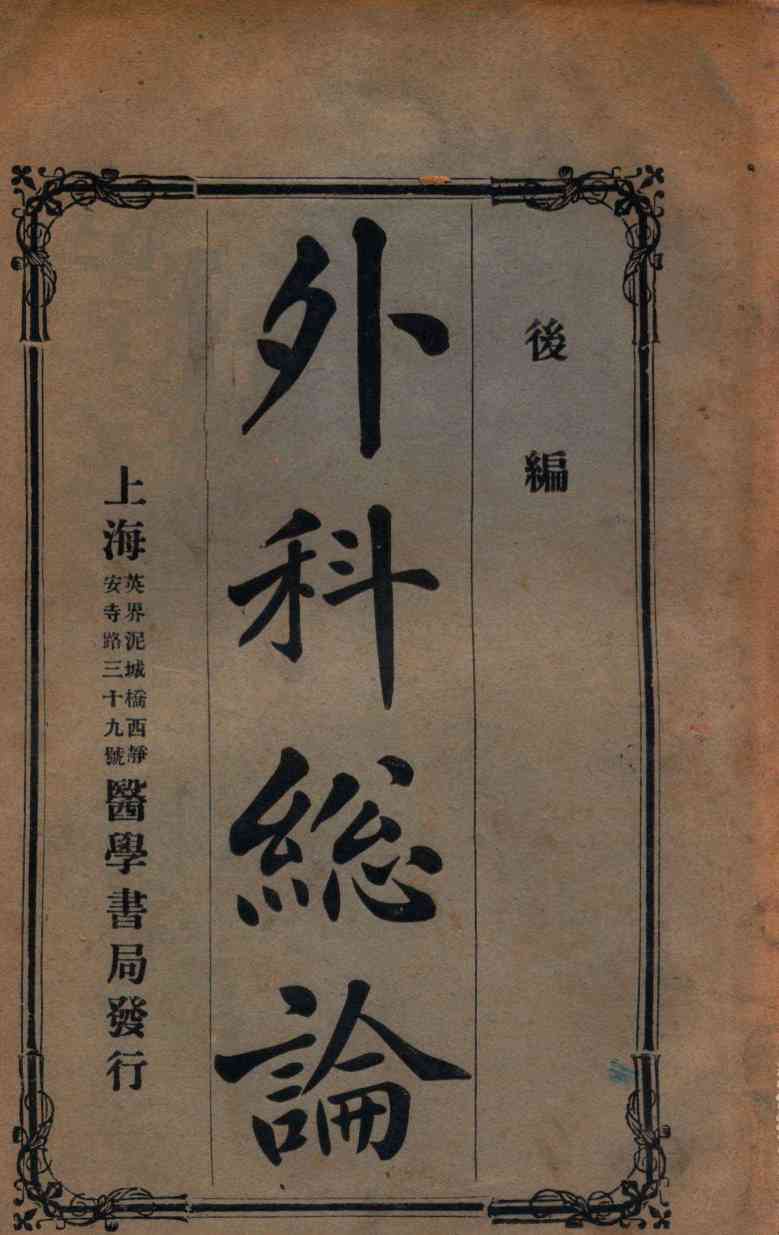 後編
外科総論
上海英界泥城橋西靜安寺路三十九號醫學書局發行